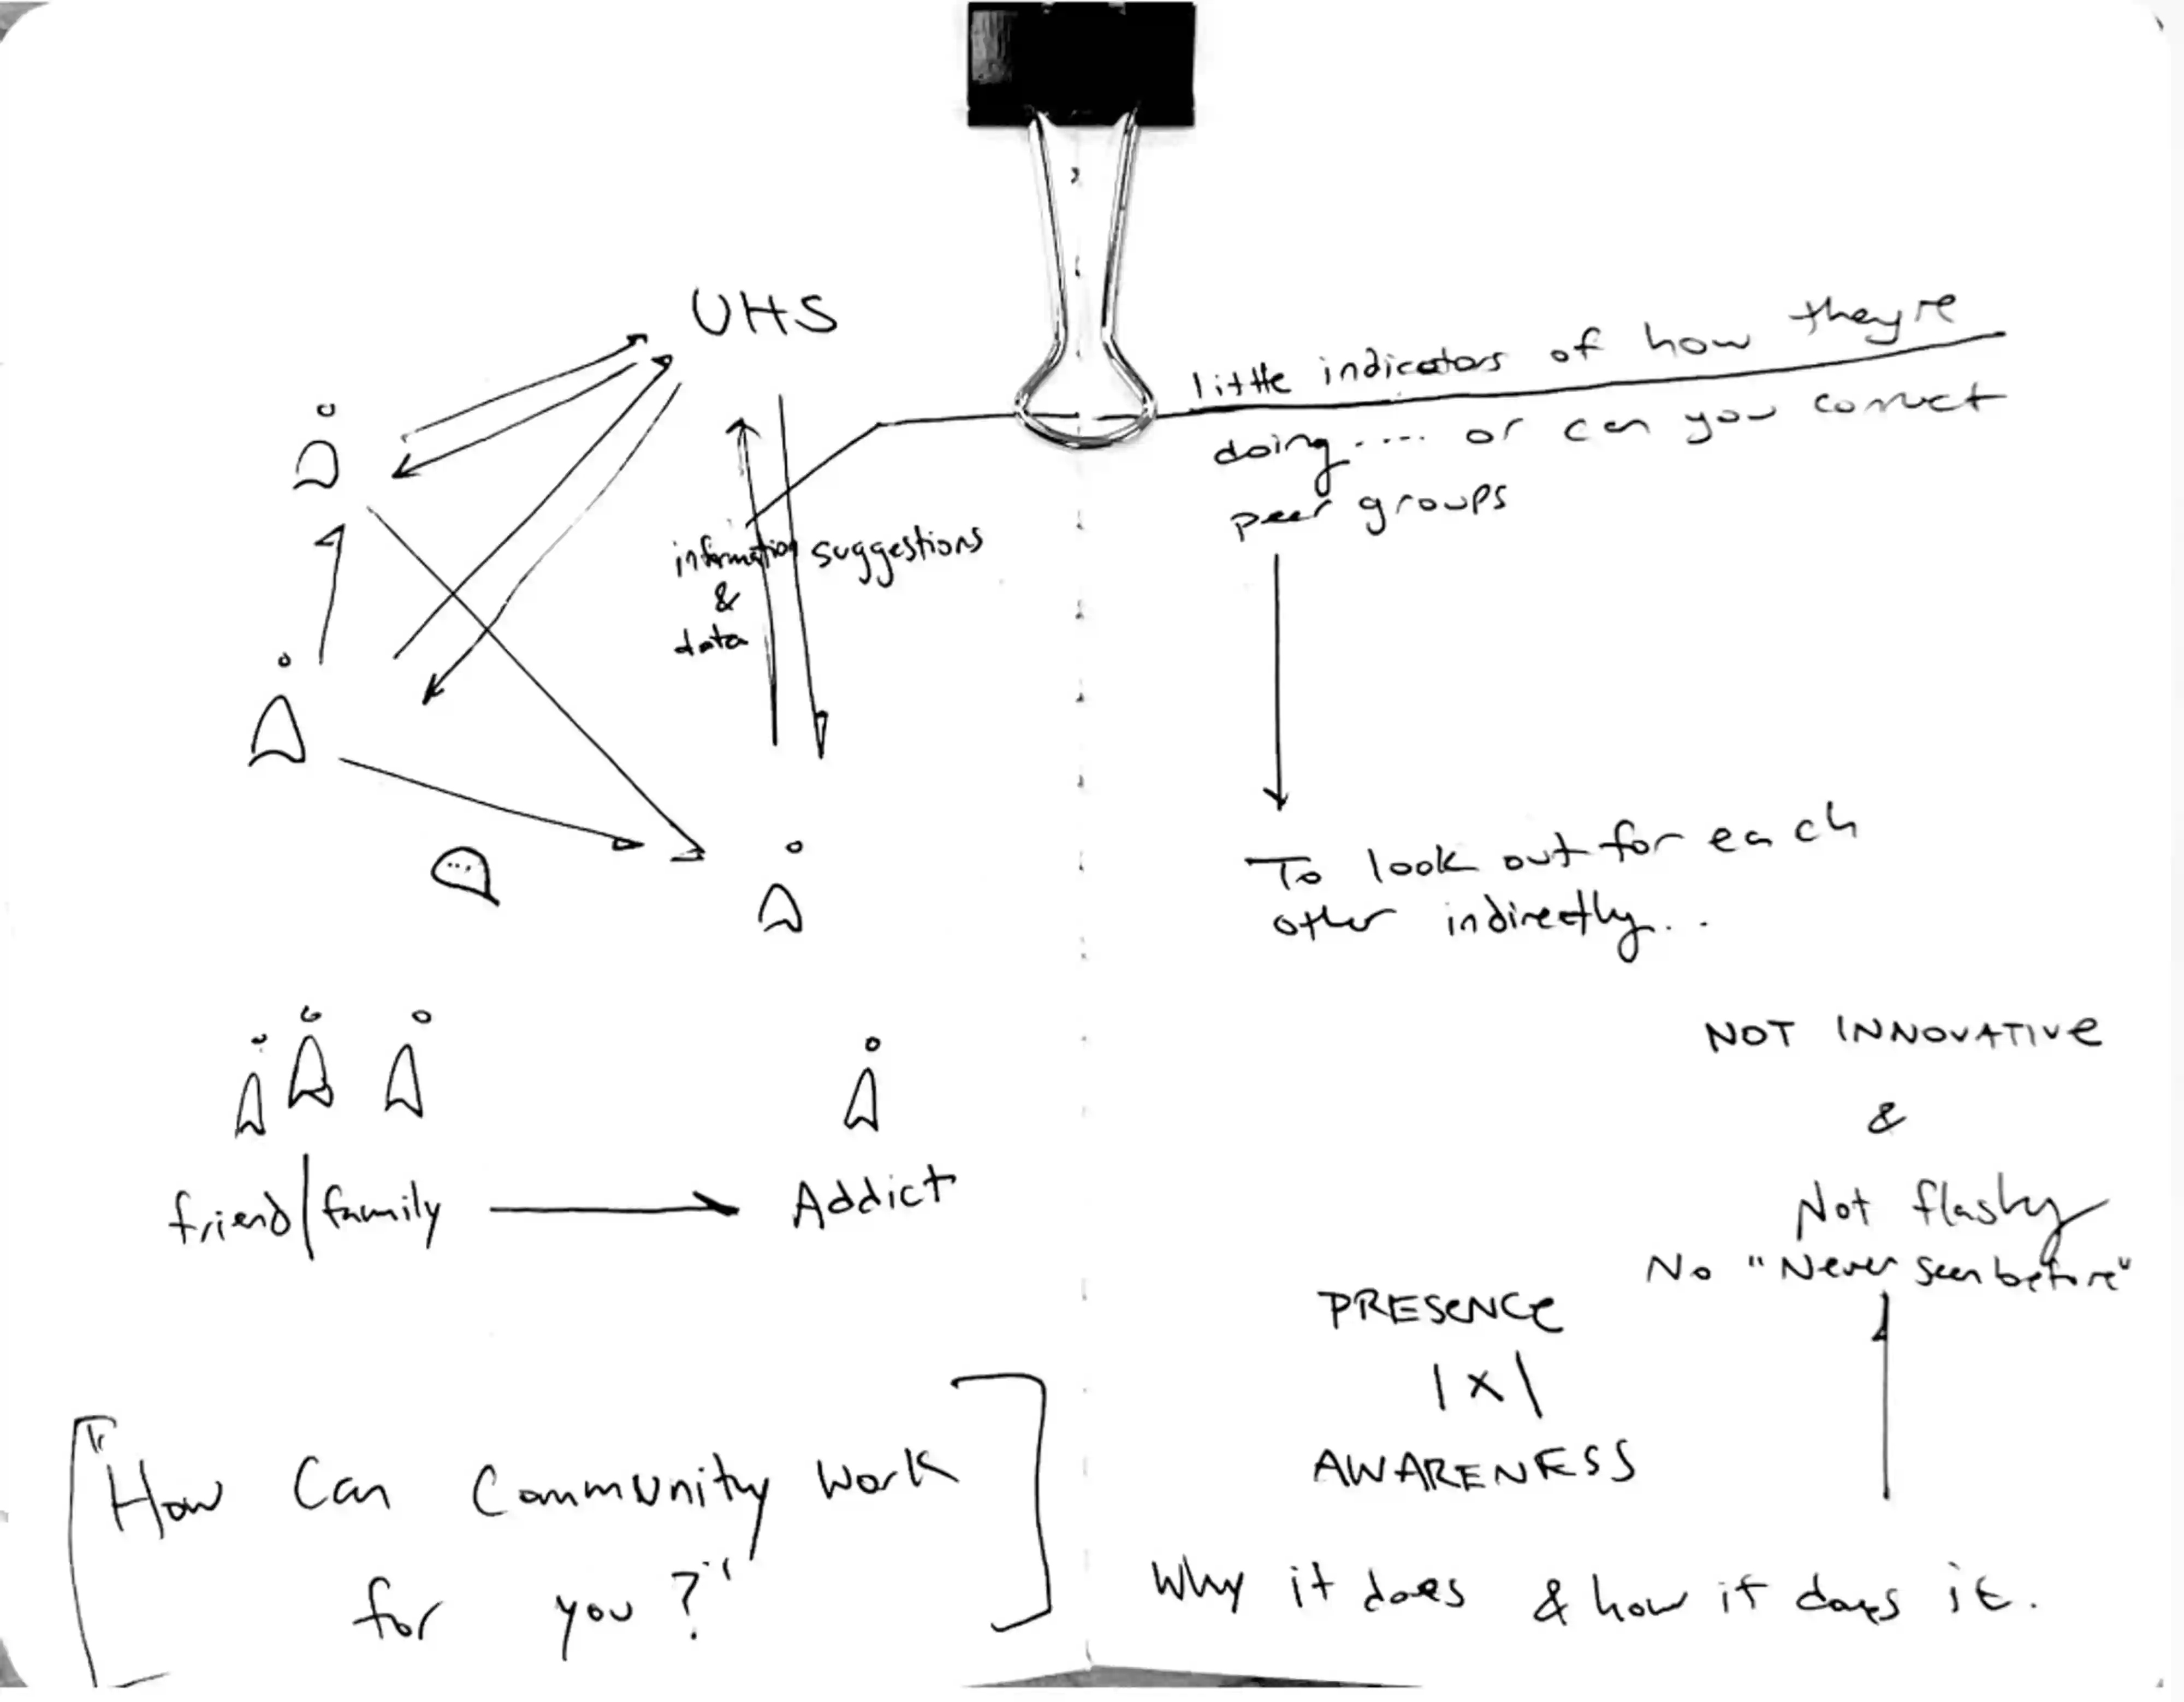 UHS
information suggestions
&
data
friend/family Addict
"How Can Community Work
for you?"
little indicators of how they're
doing.... or can you connect
peer groups
To look out for each
other indirectly...
NOT INNOVATIVE
&
Not flashy
No "Never seen before"
PRESENCE
|x|
AWARENESS
Why it does & how it does it.